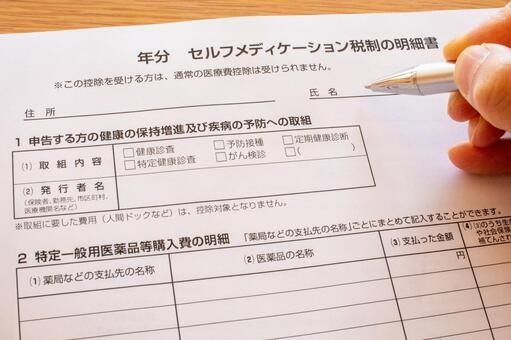 年分 セルフメディケーション税制の明細書
※この控除を受ける方は、通常の医療費控除は受けられません。
住 所
氏 名
1 申告する方の健康の保持増進及び疾病の予防への取組
(1) 取 組 内 容
□健康診査 □予防接種 □定期健康診断
□特定健康診査 □がん検診 □( )
(2) 発 行 者 名
(保険者、勤務先、市区町村、
医療機関名など)
※取組に要した費用(人間ドックなど)は、控除対象となりません。
2 特定一般用医薬品等購入費の明細 「薬局などの支払先の名称」ごとにまとめて記入することができます。
(1) 薬局などの支払先の名称
(2) 医薬品の名称
(3) 支払った金額
(4) (3)のうち生
や社会保険
補てんされ
円